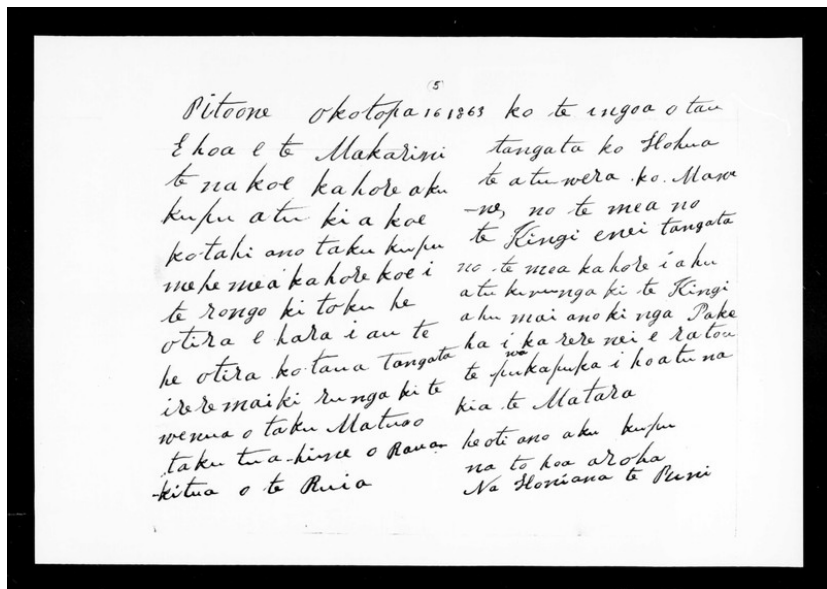 (5)
Pitoone Okotopa 16 1863
E hoa e te Makarini
te na koe kahore aku
kupu atu ki a koe
kotahi ano taku kupu
mehemea kahore koe i
te rongo ki toku he
otira e hara i au te
he otira ko taua tangata
i rere mai ki runga ki te
wenua o taku Matuao
taku tua-hine o Rauka
-kitua o te Ruia
ko te ingoa o tau
tangata ko Hohua
te atuwera . ko . Mawe
-ne, no te mea no
te Kingi enei tangata
no te mea kahore i ahu
atu ki runga ki te Kingi
ahu mai ano ki nga Pake
ha i ka rere nei e ratou
te pukapuka wa i hoatu na
kia te Matara
heoti ano aku kupu
na to hoa aroha
Na Honiana te Puni